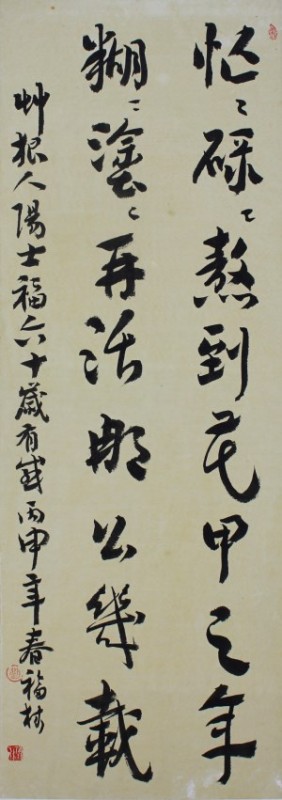 忙々碌々熬到花甲之年
糊々塗々再活那么幾載
艸根人陽士福六十歲有感丙申年春福